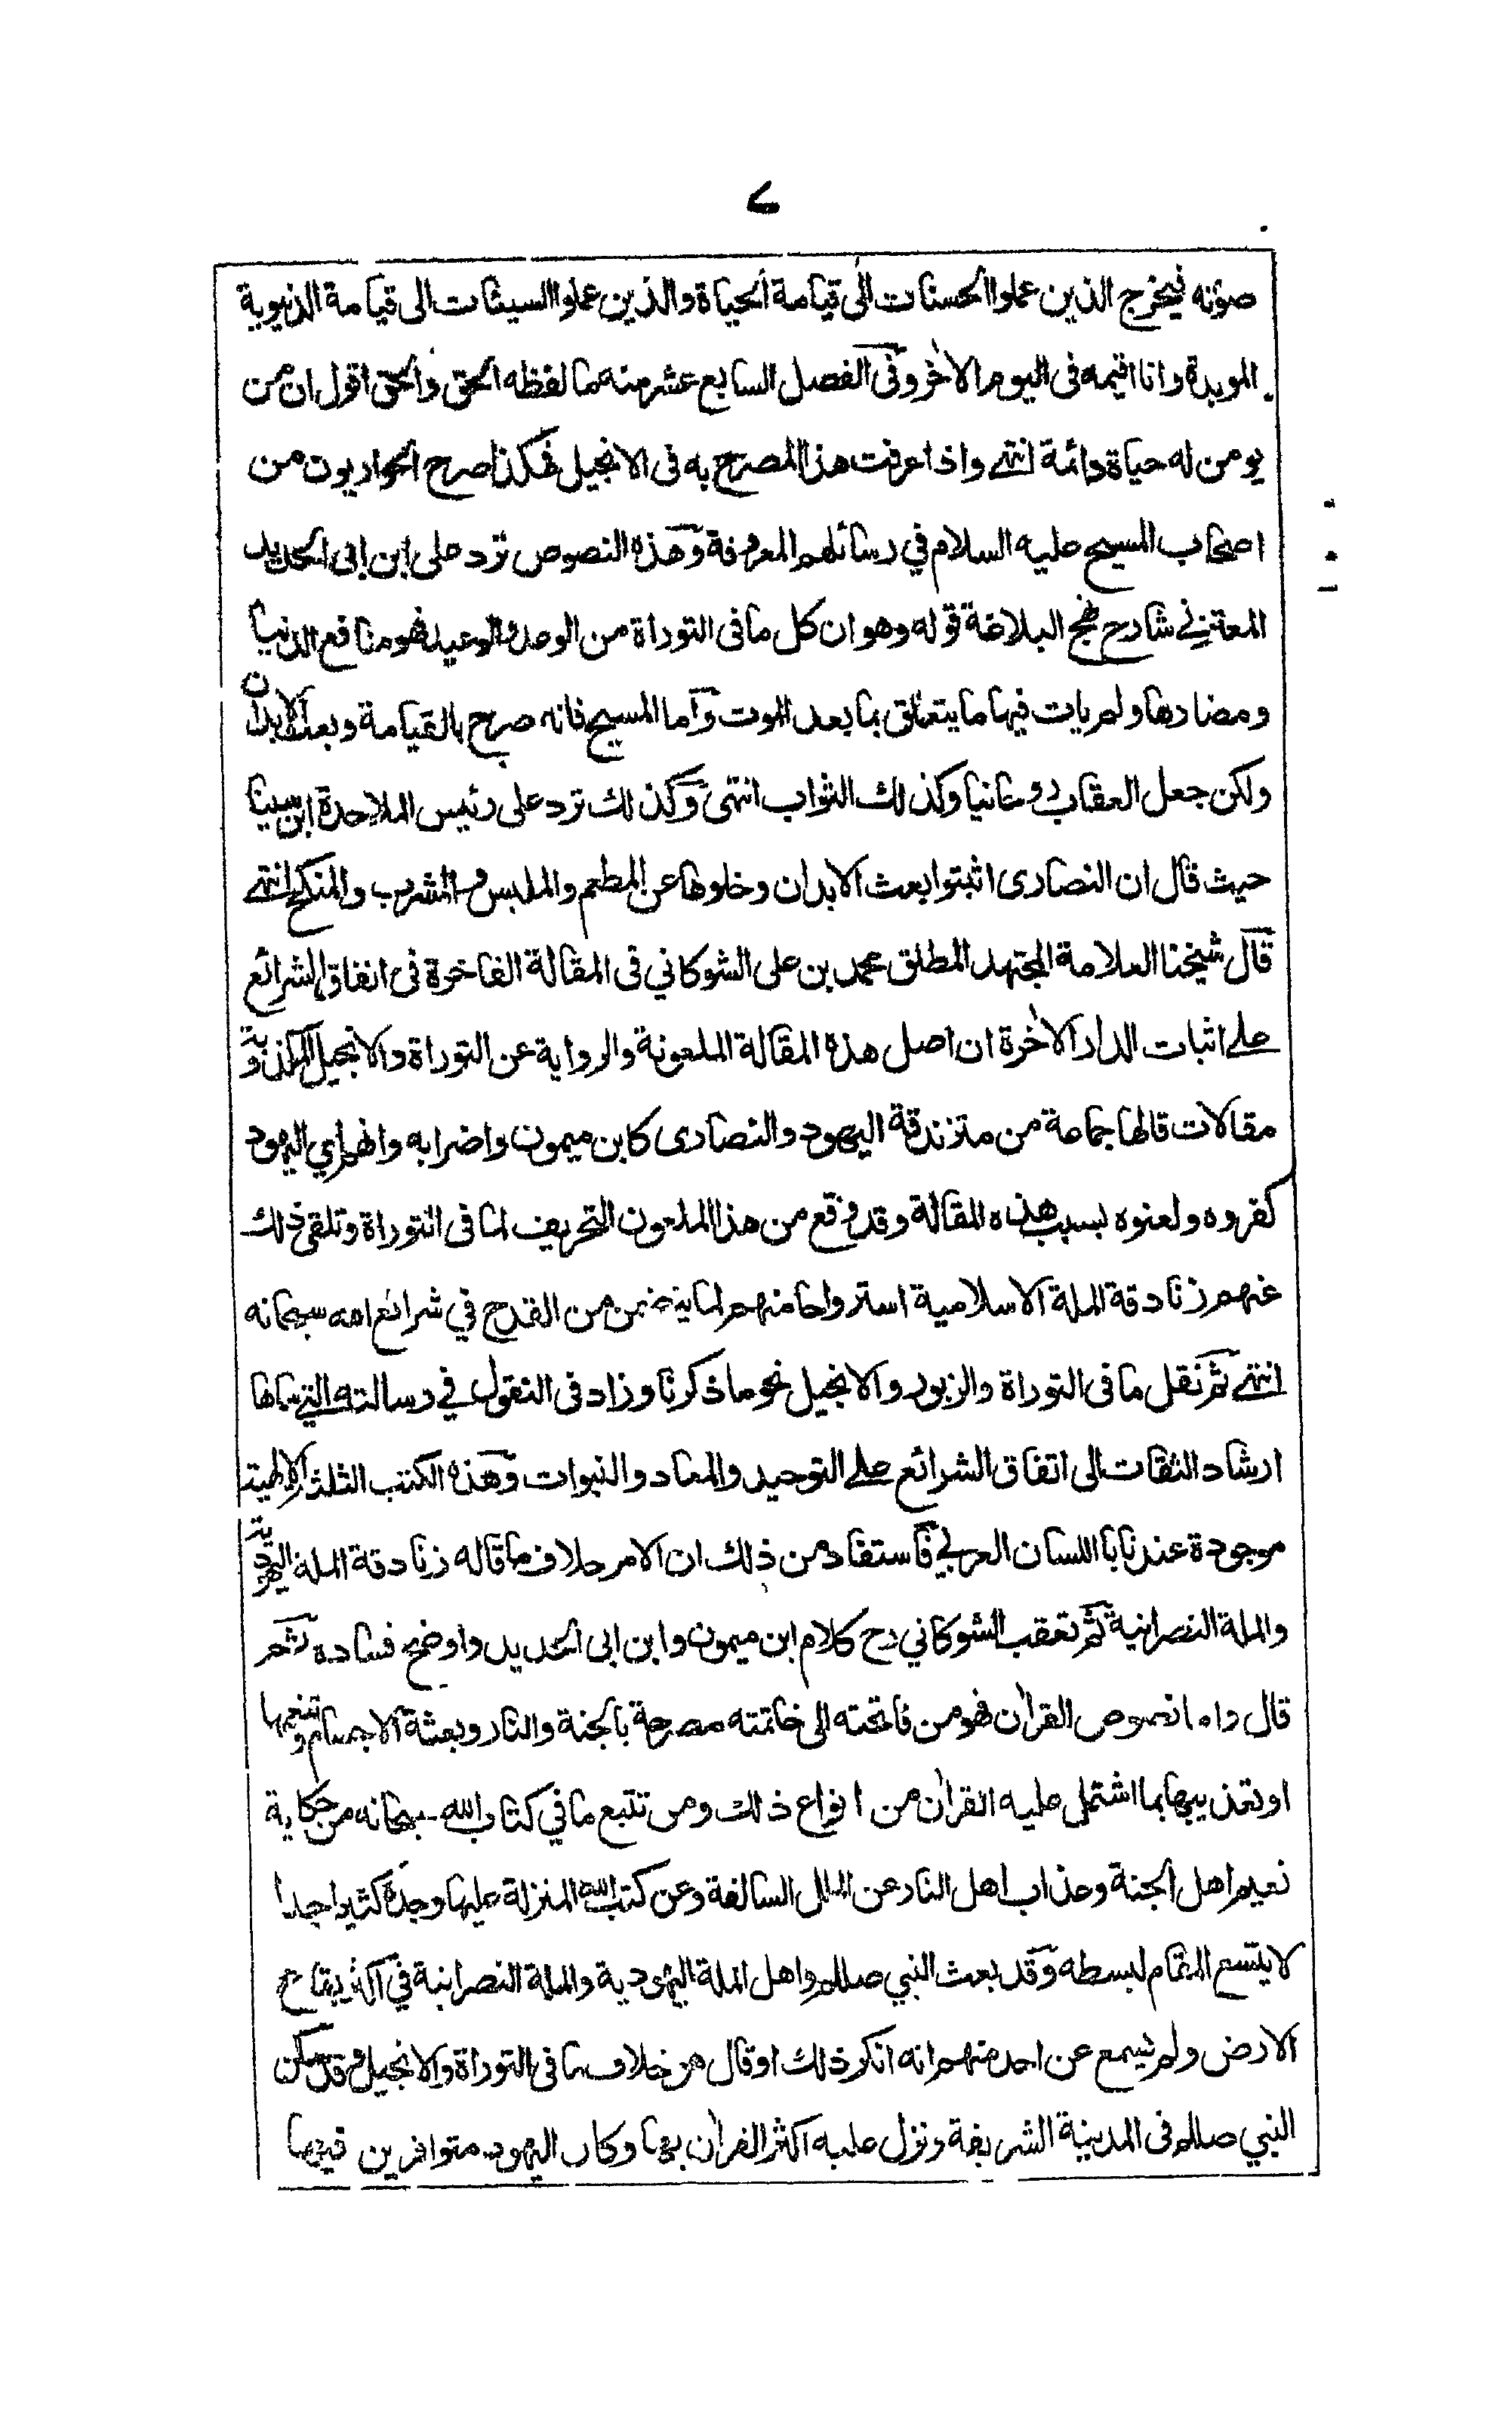 ٧
صوته فيخرج الذين عملوا الحسنات الى قيامة الحياة والذين عملوا السيئات الى قيامة الدنيوية
المويدة وانا اقيمه فى اليوم الاٰخر وفى الفصل السابع عشر منه ما لفظه الحق والحق اقول ان من
يومن له حياة دائمة انتهى واذا عرفت هذا المصرح به فى الانجيل فهكذا صرح الحواريون من
اصحاب المسيح عليه السلام في رسائلهم المعروفة وهذه النصوص ترد على ابن ابى الحديد
المعتزلي شارح نهج البلاغة قوله وهو ان كل ما فى التوراة من الوعد والوعيد فهو منافع الدنيا
ومضارها ولم يات فيها ما يتعلق بما بعد الموت واما المسيح فانه صرح بالقيامة وبعث الابدان
ولكن جعل العقاب روحانيا وكذلك الثواب انتهى وكذلك ترد على رئيس الملاحدة ابن سينا
حيث قال ان النصارى اثبتوا بعث الابدان وخلوها عن المطعم والملبس والمشرب والمنكح انتهى
قال شيخنا العلامة المجتهد المطلق محمد بن على الشوكاني فى المقالة الفاخرة فى اتفاق الشرائع
على اثبات الدار الاٰخرة ان اصل هذه المقالة الملعونة والرواية عن التوراة والانجيل المكذوبة
مقالات قالها جماعة من متزندقة اليهود والنصارى كابن ميمون واضرابه وانهم اي اليهود
كفروه ولعنوه بسبب هذه المقالة وقد وقع من هذا الملعون التحريف لما فى التوراة وتلقى ذلك
عنهم زنادقة الملة الاسلامية استرواحا منهم لما يتضمن من القدح في شرائع الله سبحانه
انتهى ثم نقل ما فى التوراة والزبور والانجيل نحو ما ذكرنا وزاد فى النقول في رسالته التي سماها
ارشاد الثقات الى اتفاق الشرائع على التوحيد والمعاد والنبوات وهذه الكتب الثلثة الالهية
موجودة عندنا با اللسان العربي فاستفاد من ذلك ان الامر خلاف ما قاله زنادقة الملة اليهودية
والملة النصرانية ثم تعقب الشوكاني رح كلام ابن ميمون وابن ابى الحديد واوضح فساده ثم
قال واما نصوص القراٰن فهو من فاتحته الى خاتمته مصرحة بالجنة والنار وبعثة الاجسام وتنعمها
او تعذيبها بما اشتمل عليه القراٰن من انواع ذلك ومن تتبع ما في كتاب الله سبحانه من حكاية
نعيم اهل الجنة وعذاب اهل النار عن الملل السالفة وعن كتب الله المنزلة عليها وجده كثيرا جدا
لا يتسع المقام لبسطه وقد بعث النبي صللم واهل الملة اليهودية والملة النصرانية في اكثر بقاع
الارض ولم يسمع عن احد منهم انه انكر ذلك او قال هو خلاف ما فى التوراة والانجيل وقد سكن
النبي صللم فى المدينة الشريفة ونزل عليه اكثر القراٰن بها وكان اليهود متوافرين فيها